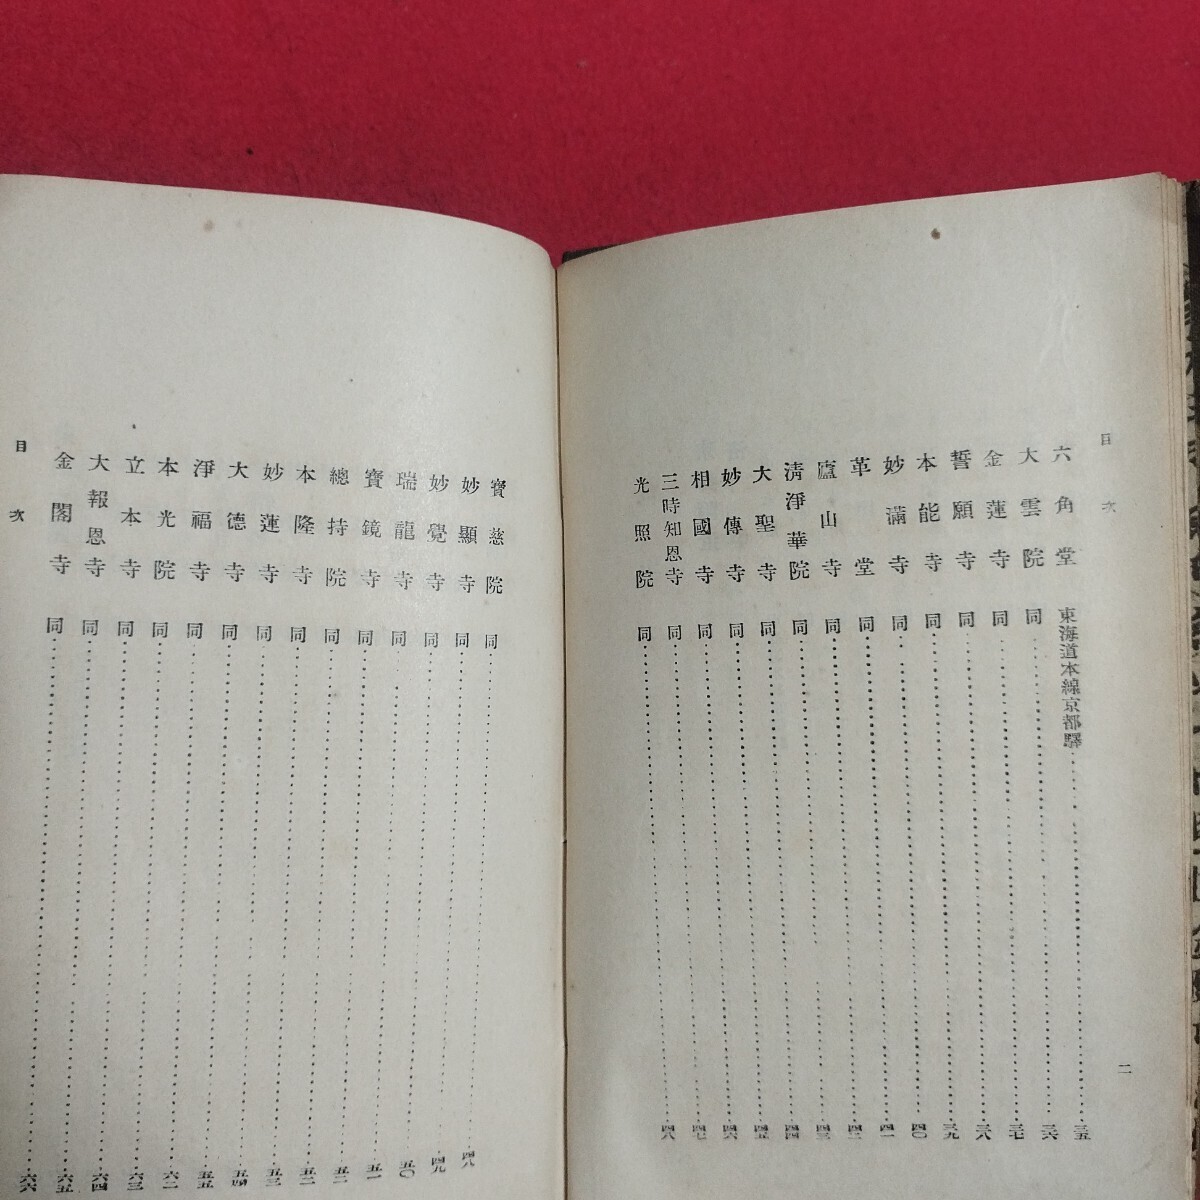 目次
六角堂 東海道本線京都驛 三五
大雲院 同 三六
金蓮寺 同 三七
誓願寺 同 三八
本能寺 同 三九
妙滿寺 同 四〇
革堂 同 四一
廬山寺 同 四二
清淨華院 同 四三
大聖寺 同 四四
妙傳寺 同 四五
相國寺 同 四六
三時知恩寺 同 四七
光照院 同 四八
二
寶慈院 同 四八
妙顯寺 同 四九
妙覺寺 同 五〇
瑞龍寺 同 五一
寶鏡寺 同 五二
總持院 同 五二
本隆寺 同 五三
妙蓮寺 同 五四
大德寺 同 五五
淨福寺 同 六二
本光院 同 六三
立本寺 同 六四
大報恩寺 同 六五
金閣寺 同 六六
目次